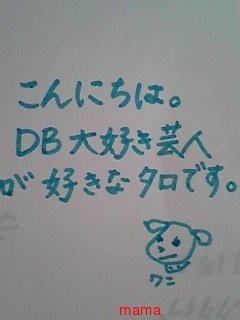 こんにちは。
DB大好き芸人
が好きなタロです。
ワシ
mama